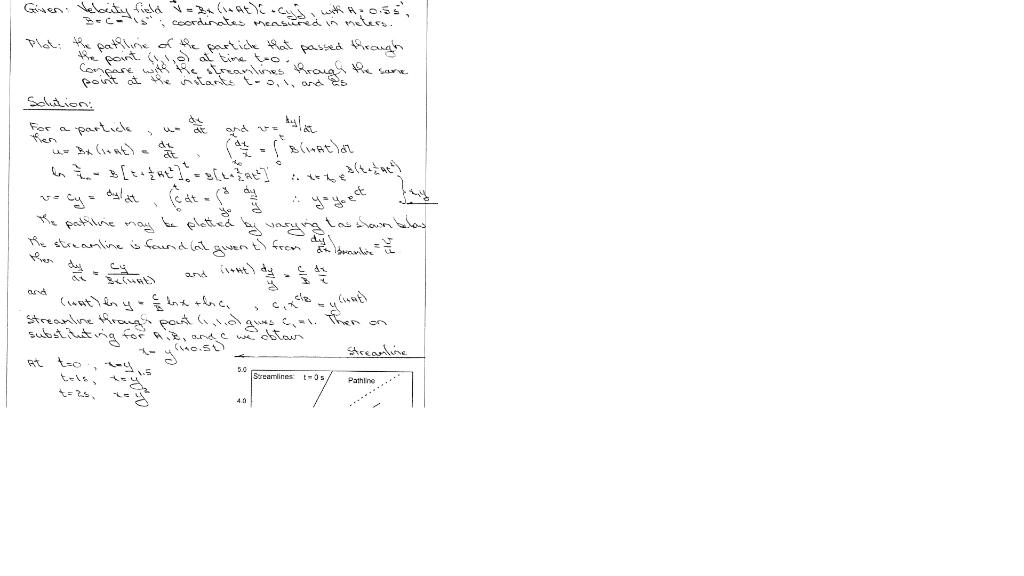 Given: Velocity field V⃗ = Bx(1+At)î + Cyĵ, with A = 0.5 s⁻¹,
B = C = 1 s⁻¹; coordinates measured in meters.
Plot: the pathline of the particle that passed through
the point (1,1,0) at time t=0.
Compare with the streamlines through the same
point at the instants t = 0, 1, and 2s
Solution:
For a particle, u = dx/dt and v = dy/dt
Then
u = Bx(1+At) = dx/dt, ∫_{x₀}^{x} dx/x = ∫_0^t B(1+At)dt
ln x/x₀ = B[t+½At²]_0^t = B[t+½At²] ∴ x = x₀e^{B(t+½At²)}
v = Cy = dy/dt, ∫_0^t C dt = ∫_{y₀}^{y} dy/y ∴ y = y₀e^{Ct} } x,y
The pathline may be plotted by varying t as shown below
The streamline is found (at given t) from dy/dx)streamline = v/u
Then dy/dx = Cy/Bx(1+At) and (1+At) dy/y = C/B dx/x
and
(1+At) ln y = C/B ln x + ln c₁, c₁x^{C/B} = y^{(1+At)}
Streamline through point (1,1,0) gives c₁=1. Then on
substituting for A, B, and C we obtain
x = y^{(1+0.5t)} Streamline
At t=0, x=y
t=1s, x=y^{1.5}
t=2s, x=y²
5.0
Streamlines: t = 0 s
Pathline
4.0